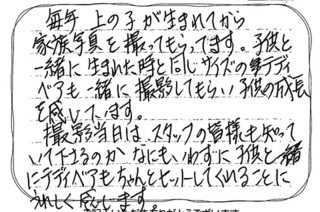 毎年 上の子が生まれてから
家族写真を撮ってもらってます。子供と
一緒に生まれた時と同じサイズの毎テディ
ベアも一緒に撮影してもらい子供の成長
を感じてます。
撮影当日は、スタッフの皆様も知って
いて下さるのかなにも、いわずに子供と一緒
にテディベアもちゃんとセットしてくれることに
うれしく感じます。